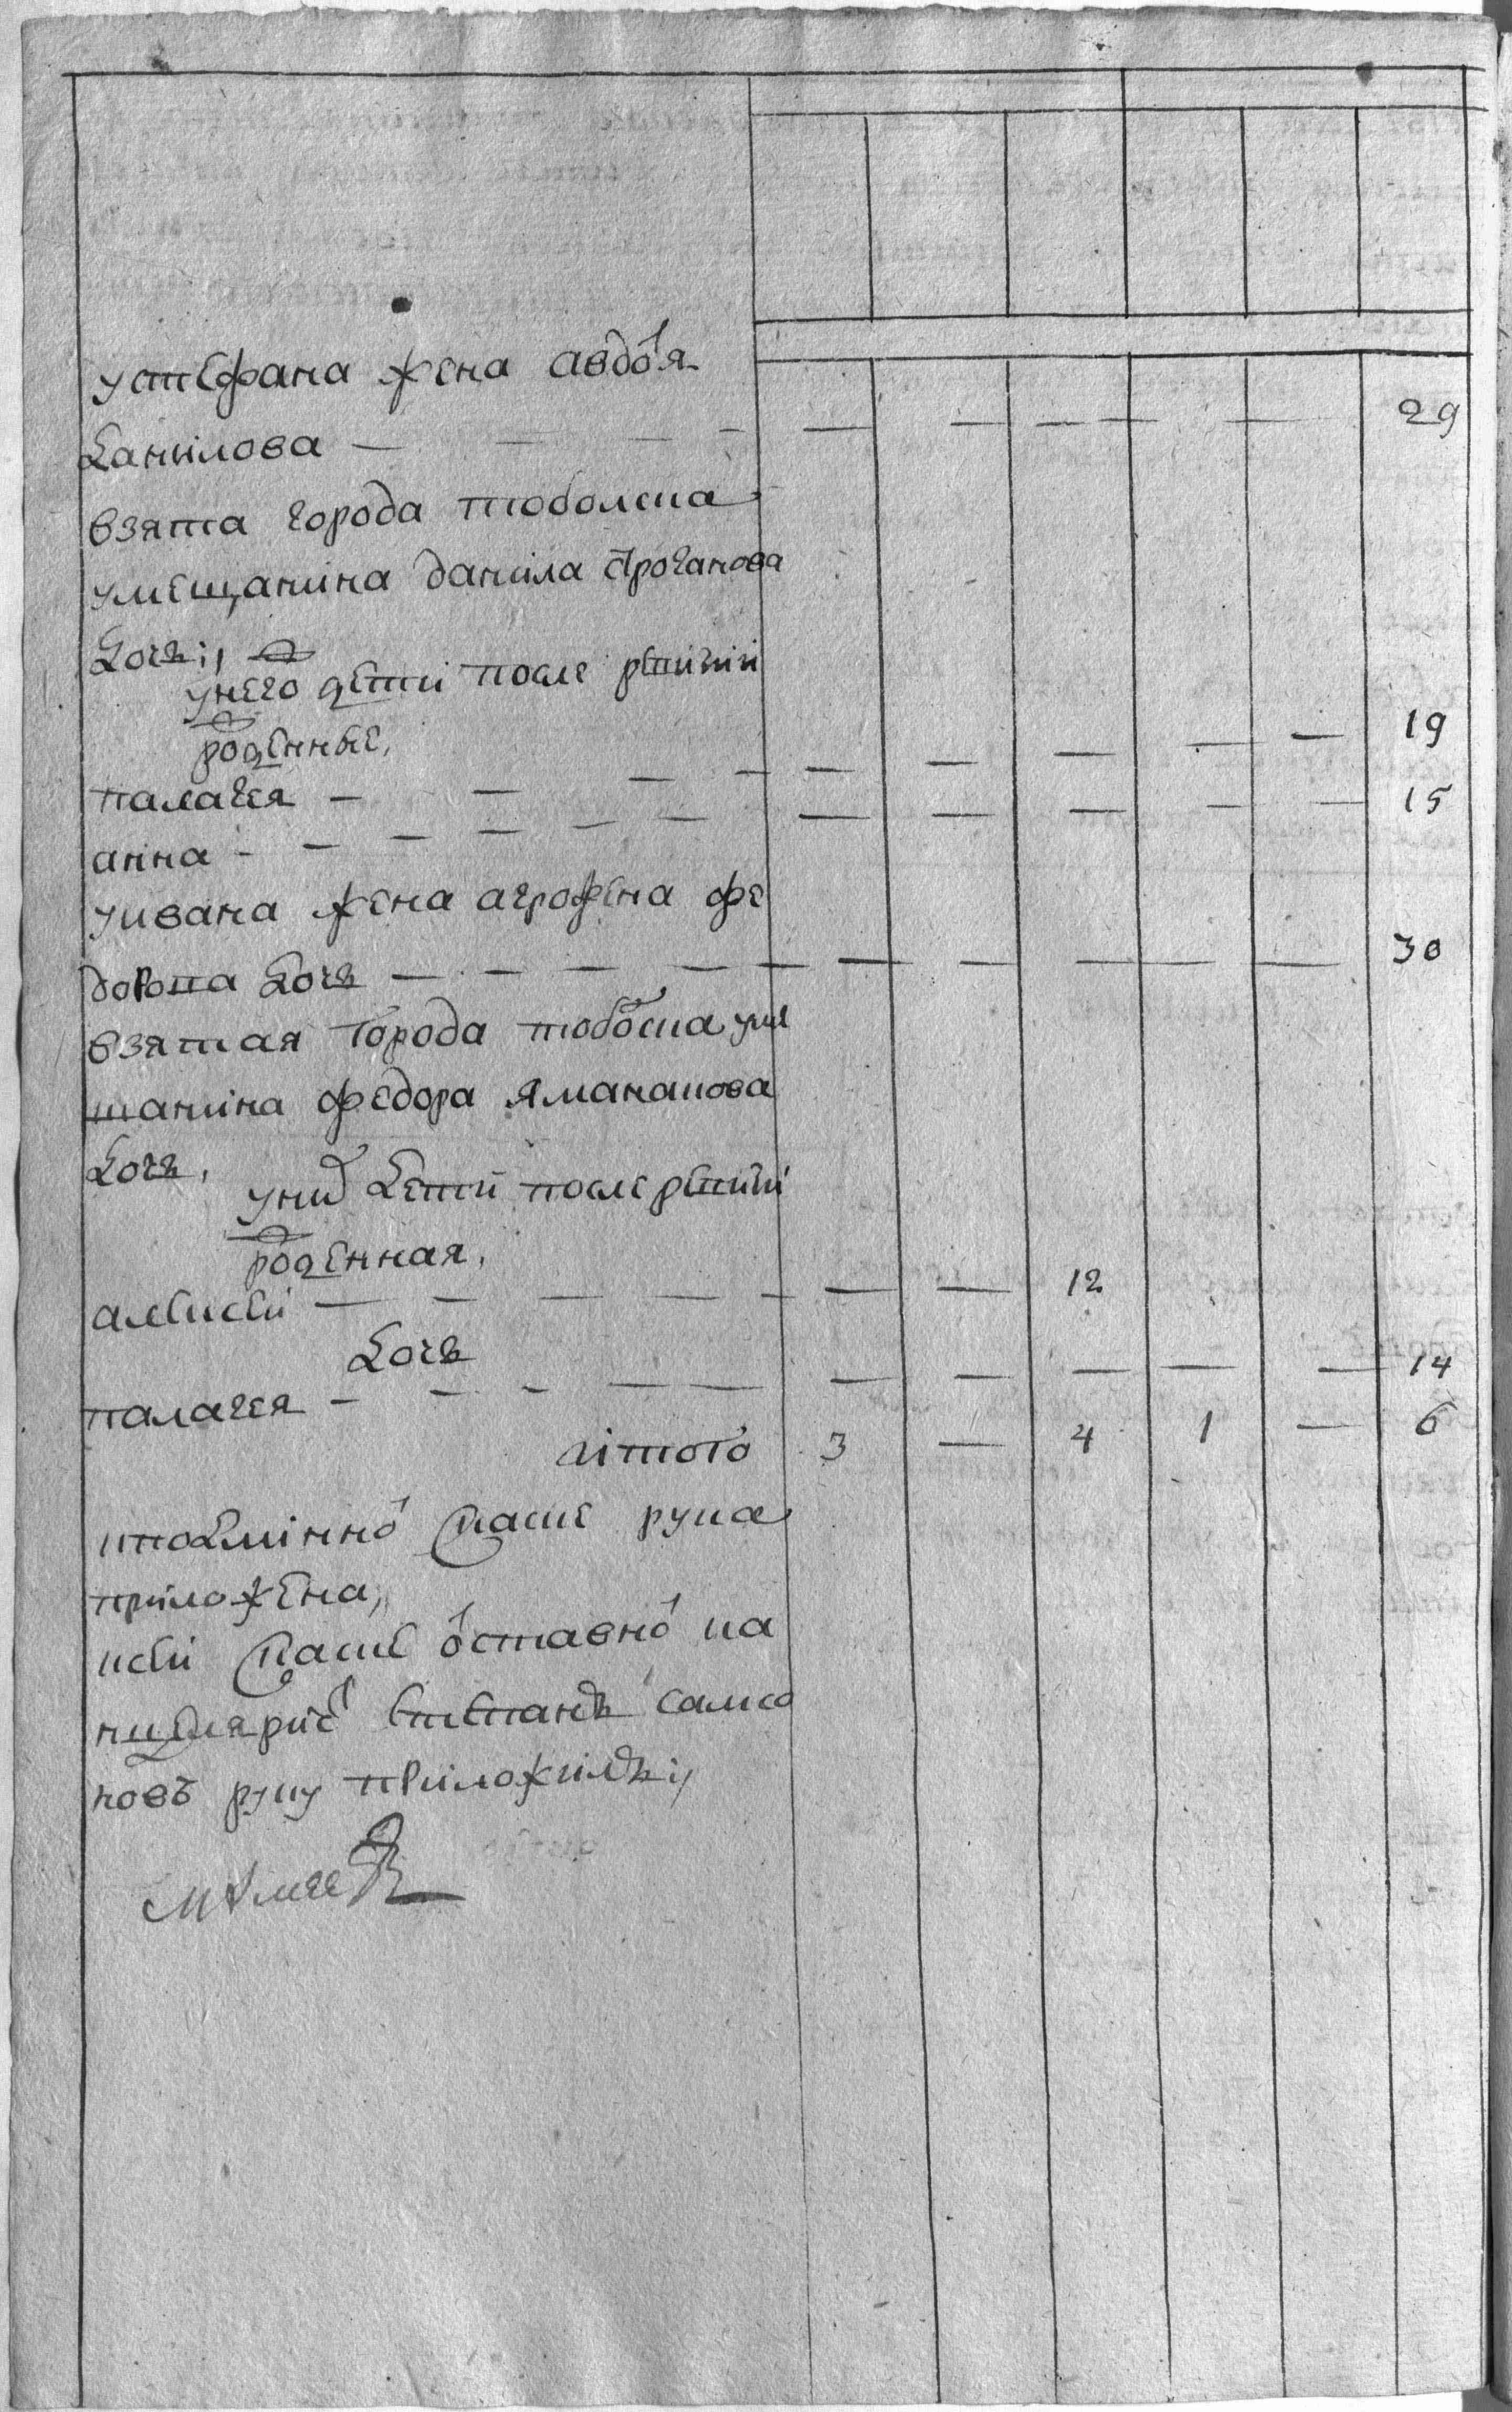 устефана жена авдотя
данилова — — — — — — — — — 29
взята города тоболска
умещанина данила Строганова
дочь
унего дети после ревизии
рожденные,
палагея — — — — — — — — — 19
анна — — — — — — — — — — — 15
уивана жена агрофена фе
дорова дочь — — — — — — — — — — 30
взятая города тоболска уме
щанина федора Яманакова
дочь,
уних дети после ревизии
рожденная,
алексей — — — — — — — 12
дочь
палагея — — — — — — — — — — 14
итого 3 — 4 1 — 6
иподлинной скаске рука
приложена,
ксей скаске отставной ка
нцелярист степанъ самсо
новъ руку приложилъ